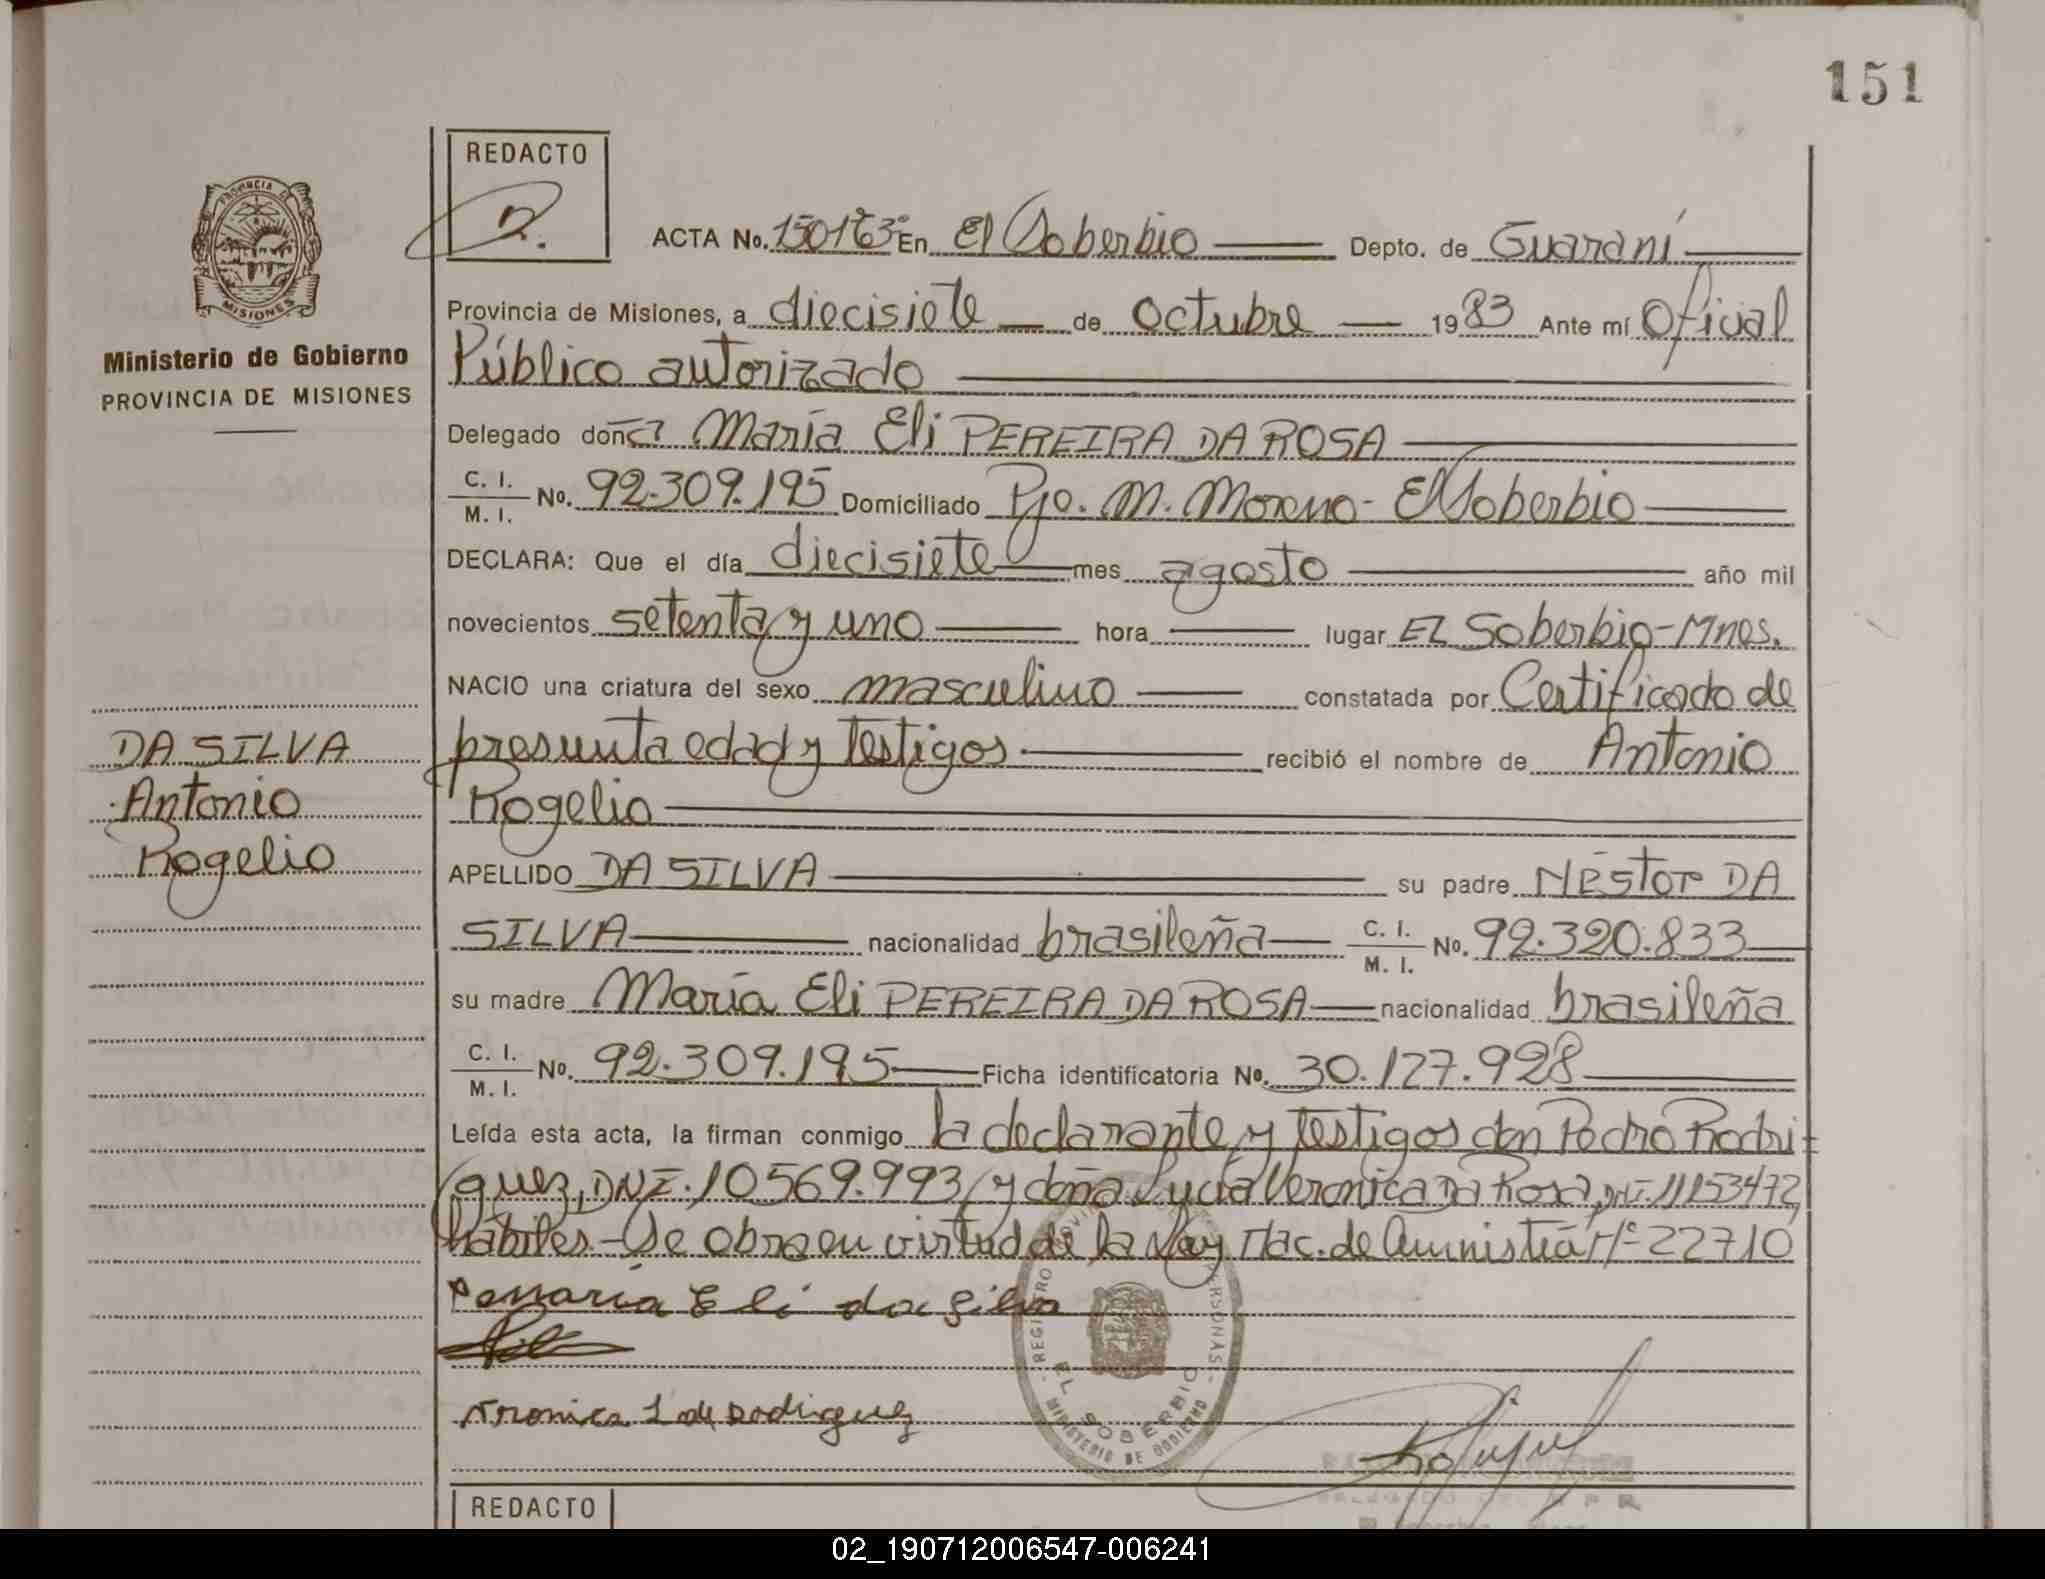 151
REDACTO
ACTA No. 150 En El Soberbio Depto. de Guaraní
PROVINCIA DE
MISIONES
Provincia de Misiones, a diecisiete de octubre 1983 Ante mí Oficial
Ministerio de Gobierno
PROVINCIA DE MISIONES
Público autorizado
Delegado doña María Eli PEREIRA DA ROSA
C. I.
M. I. No. 92.309.195 Domiciliado Pje. M. Moreno - El Soberbio
DECLARA: Que el día diecisiete mes agosto año mil
novecientos setenta y uno hora lugar El Soberbio-Mnes.
NACIO una criatura del sexo masculino constatada por Certificado de
presunta edad y testigos recibió el nombre de Antonio
Rogelio
DA SILVA
Antonio
Rogelio
APELLIDO DA SILVA su padre NéSTOR DA
SILVA nacionalidad brasileña C. I.
M. I. No. 92.320.833
su madre María Eli PEREIRA DA ROSA nacionalidad brasileña
C. I.
M. I. No. 92.309.195 Ficha identificatoria No. 30.127.928
Leída esta acta, la firman conmigo la declarante y testigos don Pedro Rodri-
guez, DNI. 10569.993 y doña Lucía Veronica Da Rosa, DNI. 11153472,
hábiles - Se obra en virtud de la Ley Nac. de Amnistía Nº 22710
María Eli da Silva
de Rodriguez
REGISTRO PROVINCIAL PERSONAS
EL SOBERBIO
MINISTERIO DE GOBIERNO
REDACTO
02_190712006547-006241